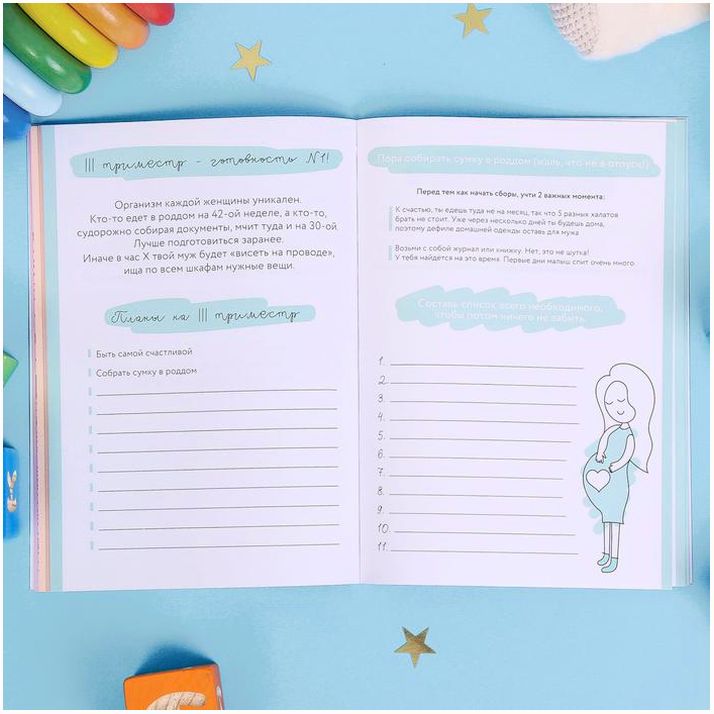 III триместр - готовность №1!
Организм каждой женщины уникален.
Кто-то едет в роддом на 42-ой неделе, а кто-то,
судорожно собирая документы, мчит туда и на 30-ой.
Лучше подготовиться заранее.
Иначе в час Х твой муж будет «висеть на проводе»,
ища по всем шкафам нужные вещи.
Планы на III триместр
Быть самой счастливой
Собрать сумку в роддом
Пора собирать сумку в роддом (жаль, что не в отпуск)
Перед тем как начать сборы, учти 2 важных момента:
К счастью, ты едешь туда не на месяц, так что 5 разных халатов
брать не стоит. Уже через несколько дней ты будешь дома,
поэтому дефиле домашней одежды оставь для мужа
Возьми с собой журнал или книжку. Нет, это не шутка!
У тебя найдется на это время. Первые дни малыш спит очень много
Составь список всего необходимого,
чтобы потом ничего не забыть
1.
2.
3.
4.
5.
6.
7.
8.
9.
10.
11.